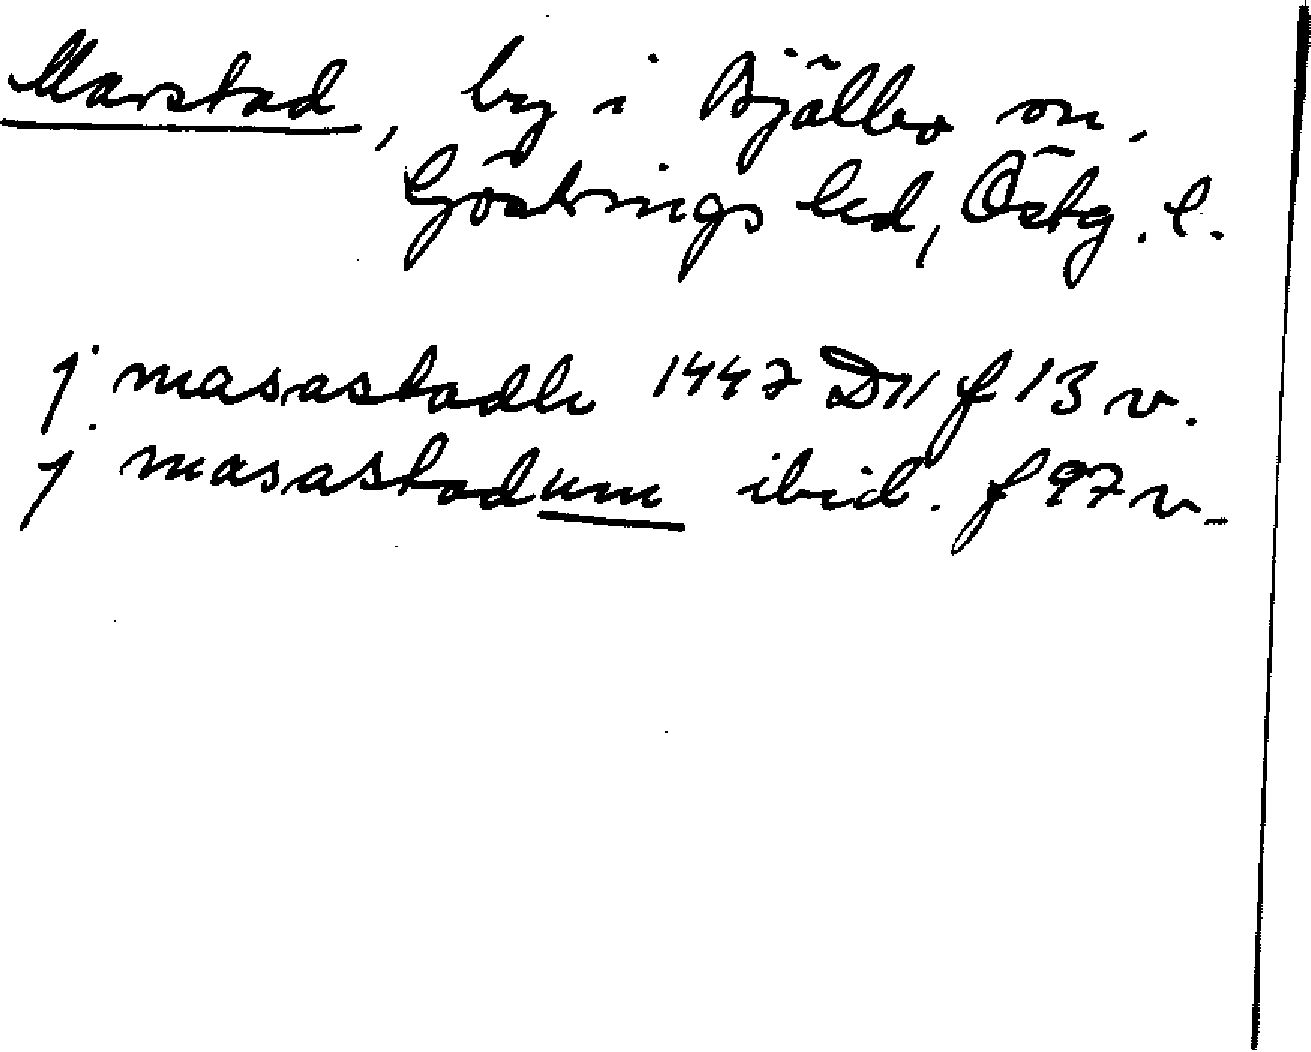 Marstad, by i Bjälbo sn.
Göstrings hd, Östg. l.
j masastadh 1447 D11 f 13 v.
j masastadum ibid. f 97 v.